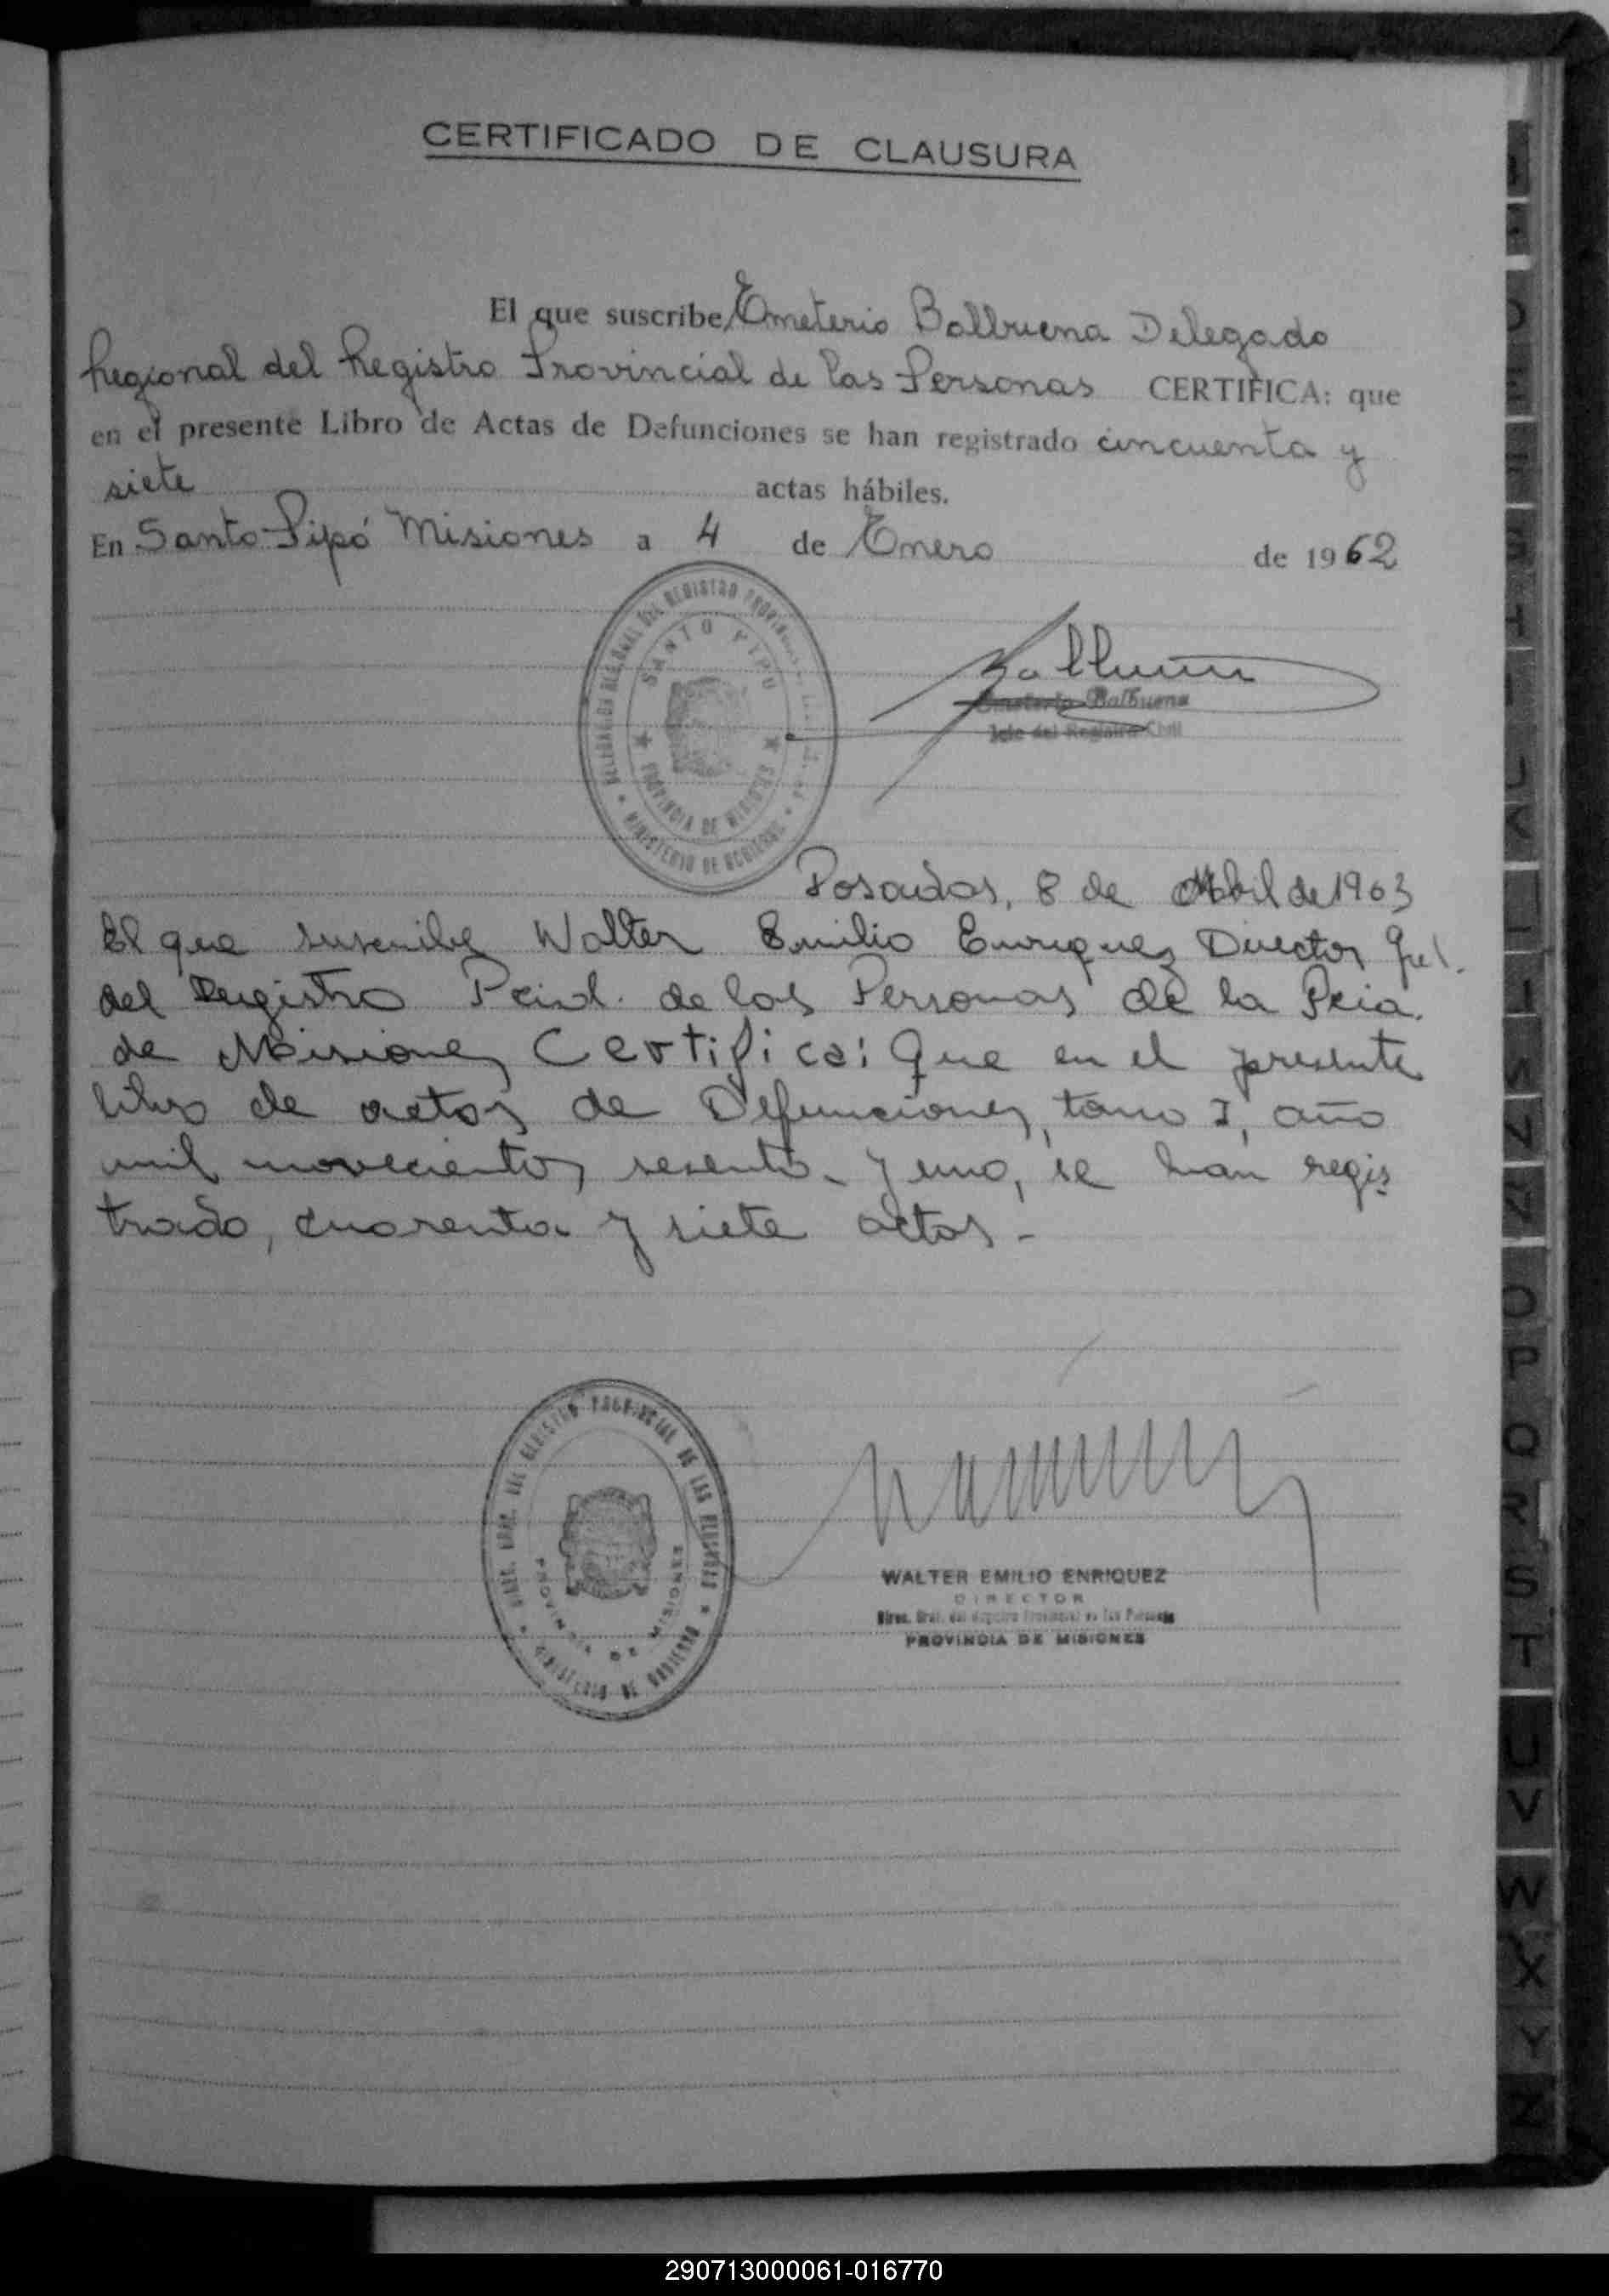 CERTIFICADO DE CLAUSURA
El que suscribe, Emeterio Balbuena Delegado
Regional del Registro Provincial de las Personas CERTIFICA: que
en el presente Libro de Actas de Defunciones se han registrado cincuenta y
siete actas hábiles.
En Santo Pipó Misiones a 4 de Enero de 1962
SANTO PIPO
PROVINCIA DE MISIONES
MINISTERIO DE GOBIERNO
Balbuena
Emeterio Balbuena
Jefe del Registro Civil
Posadas, 8 de Abril de 1963
El que suscribe Walter Emilio Enriquez Director Gral.
del Registro Pcial. de las Personas de la Pcia.
de Misiones Certifica: Que en el presente
libro de actas de Defunciones, tomo I, año
mil novecientos sesenta y uno, se han regis
trado, cuarenta y siete actas.-
DIREC. GRAL. DEL REGISTRO PROVINCIAL DE LAS PERSONAS
PROVINCIA DE MISIONES
MINISTERIO DE GOBIERNO
WALTER EMILIO ENRIQUEZ
DIRECTOR
Direc. Gral. del Registro Provincial de las Personas
PROVINCIA DE MISIONES
O
P
Q
R
S
T
U
V
W
X
Y
Z
290713000061-016770